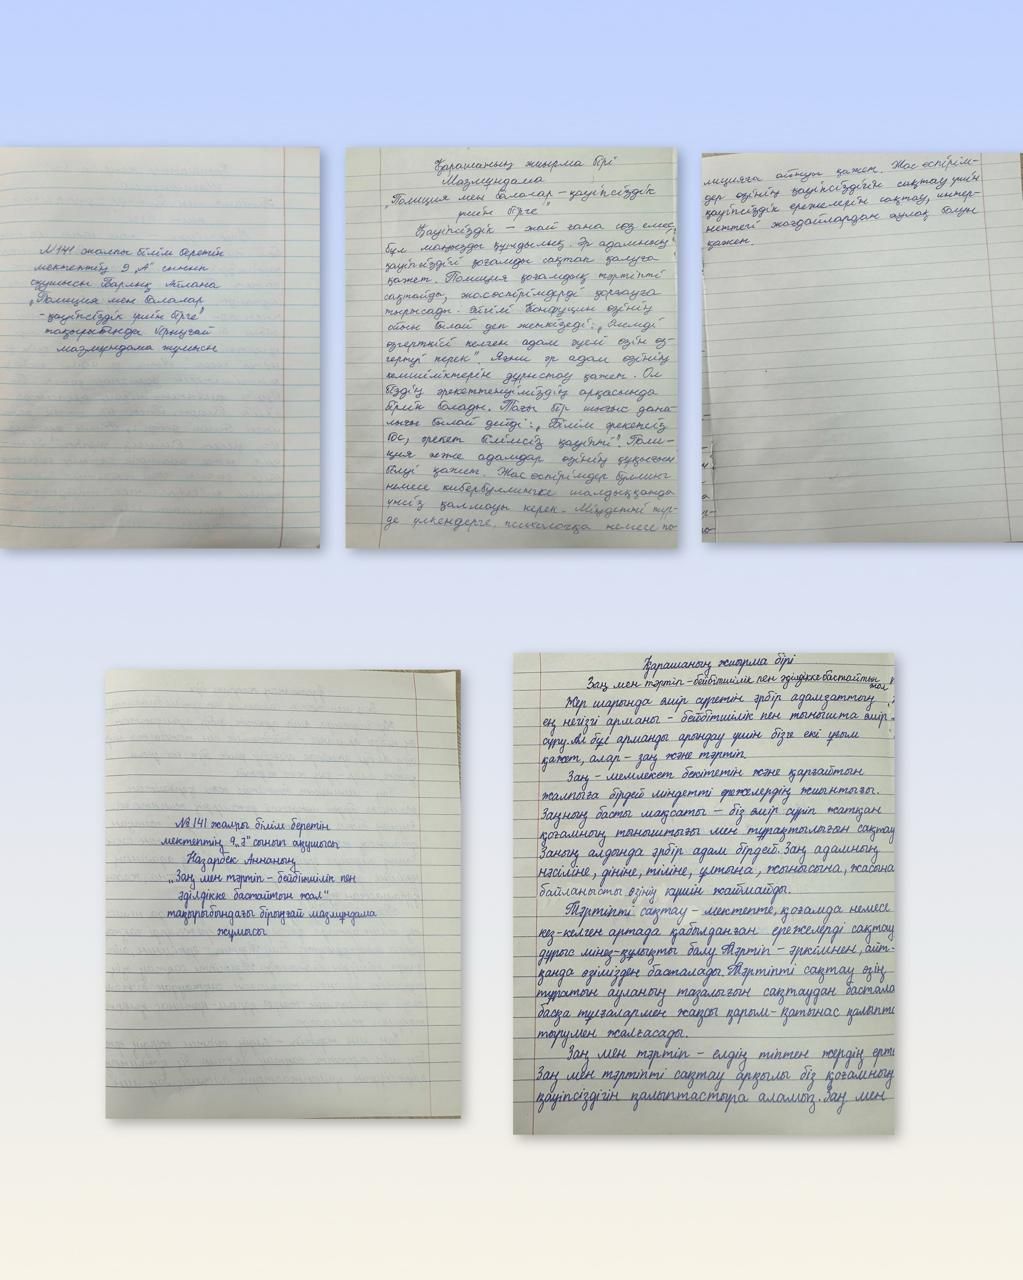 №141 жалпы білім беретін
мектептің 9 „А" сынып
оқушысы Барлық Айлана
„Полиция мен балалар
-қауіпсіздік үшін бірге"
тақырыбында бірыңғай
мазмұндама жұмысы
Қарашаның жиырма бірі
Мазмұндама
„Полиция мен балалар - қауіпсіздік
үшін бірге"
Қауіпсіздік - жай ғана сөз емес,
бұл маңызды құндылық. Әр адамның
қауіпсіздігі қоғамды сақтап қалуға
қажет. Полиция қоғамдық тәртіпті
сақтайды, жасөспірімдерді қорғауға
тырысады. Әйгілі Конфуций өзінің
ойын былай деп жеткізеді: „Әлемді
өзгерткісі келген адам әуелі өзін өз-
гертуі керек". Яғни әр адам өзінің
кемшіліктерін дұрыстау қажет. Ол
біздің әрекеттенуіміздің арқасында
бірлік болады. Тағы бір шығыс дана-
лығы былай дейді: „Білім әрекетсіз
бос, әрекет білімсіз қауіпті". Поли-
ция және адамдар өзінің құқығын
білуі қажет. Жас өспірімдер буллинг
немесе кибербуллингке шалдыққанда
үнсіз қалмауы керек. Міндетті түр-
де үлкендерге, психологқа немесе по-
лицияға айтуы қажет. Жас өспірім-
дер өзінің қауіпсіздігін сақтау үшін
қауіпсіздік ережелерін сақтау, интер-
неттегі жағдайлардан аулақ болуы
қажет.
№ 141 жалпы білім беретін
мектептің 9 „ә" сынып оқушысы
Назарбек Аннаның
„Заң мен тәртіп - бейбітшілік пен
әділдікке бастайтын жол"
тақырыбындағы бірыңғай мазмұндама
жұмысы
Қарашаның жиырма бірі
Заң мен тәртіп - бейбітшілік пен әділдікке бастайтын
жол
Жер шарында өмір сүретін әрбір адамзаттың
ең негізгі арманы - бейбітшілік пен тынышта өмір
сүру. Ал бұл арманды орындау үшін бізге екі ұғым
қажет, олар - заң және тәртіп.
Заң - мемлекет бекітетін және қорғайтын
жалпыға бірдей міндетті ережелердің жиынтығы.
Заңның басты мақсаты - біз өмір сүріп жатқан
қоғамның тыныштығы мен тұрақтылығын сақтау
Заның алдында әрбір адам бірдей. Заң адамның
нәсіліне, дініне, тіліне, ұлтына, жынысына, жасына
байланысты өзінің күшін жаймайды.
Тәртіпті сақтау - мектепте, қоғамда немесе
кез-келген ортада қабылданған ережелерді сақтау
дұрыс мінез-құлықты болу. Тәртіп - әркімнен, айт-
қанда өзімізден басталады. Тәртіпті сақтау өзің
тұратын ауланың тазалығын сақтаудан бастала
басқа тұлғалармен жақсы қарым-қатынас қалыпт
тырумен жалғасады.
Заң мен тәртіп - елдің тіптен жердің ерт
Заң мен тәртіпті сақтау арқылы біз қоғамның
қауіпсіздігін қалыптастыра аламыз. Заң мен